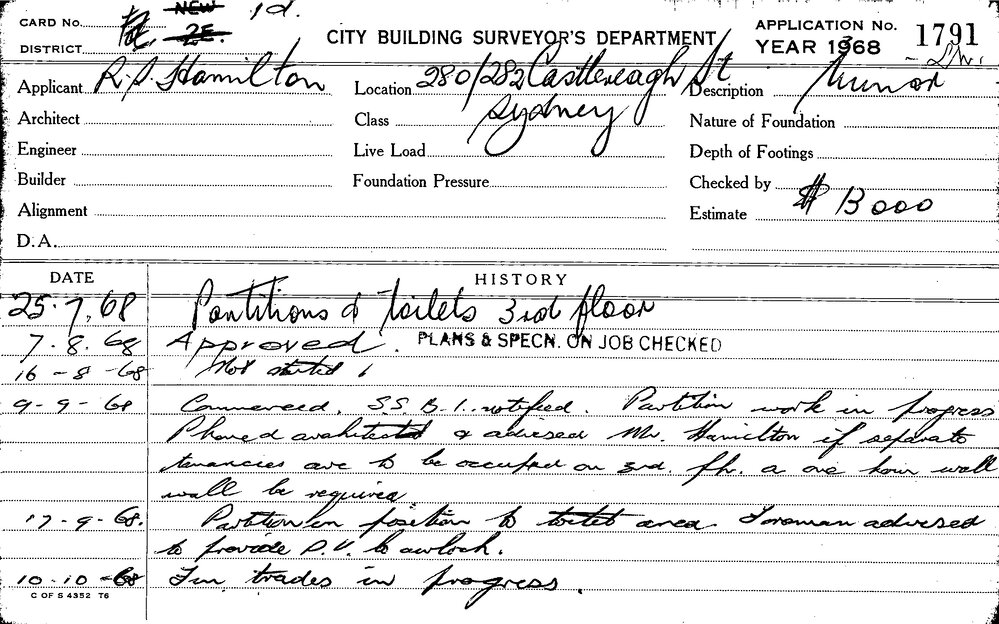 CARD No. NEW 1d.
DISTRICT 2E.
CITY BUILDING SURVEYOR'S DEPARTMENT
APPLICATION No. 1791
YEAR 1968
Applicant R.S. Hamilton
Location 280/282 Castlereagh St
Sydney
Description Minor
Architect
Class
Nature of Foundation
Engineer
Live Load
Depth of Footings
Builder
Foundation Pressure
Checked by
Alignment
Estimate $13000
D.A.
DATE HISTORY
25.7.68 Partitions & toilets 3rd floor
7.8.68 Approved. PLANS & SPECN. ON JOB CHECKED
16-8-68 Not started
9-9-68 Commenced. S.S.B.I. notified. Partition work in progress
Phoned architect & advised Mr. Hamilton if separate
tenancies are to be occupied on 3rd. flr. a one hour wall
will be required
17-9-68. Partition in position to toilet area. Foreman advised
to provide P.V. to airlock.
10-10-68 Fin trades in progress.
C OF S 4352 T6